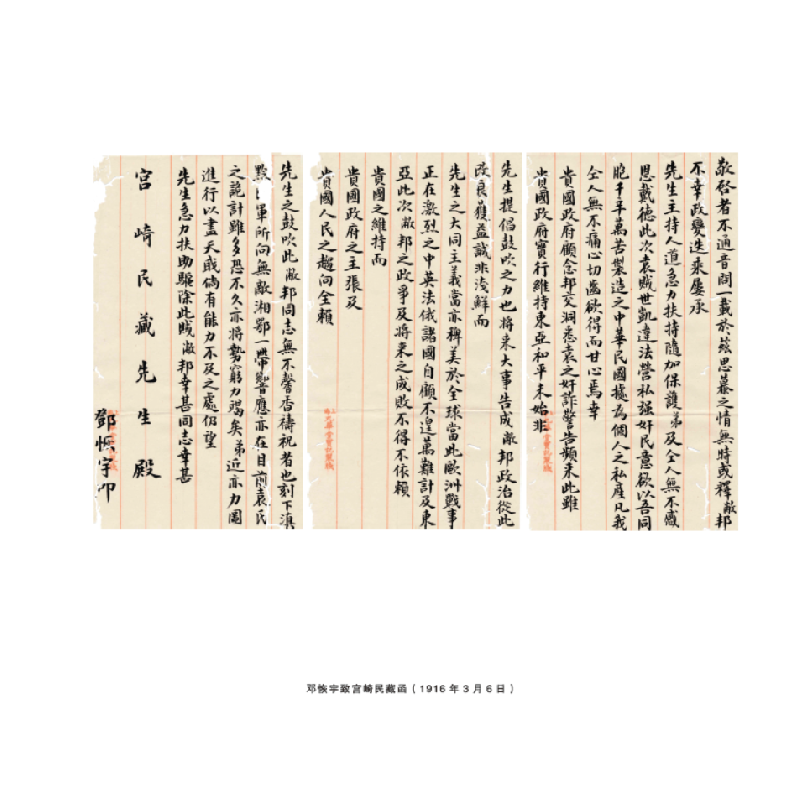 敬啓者不通音問一載於茲思慕之情無時或釋敝邦
不幸政變迭乘屢承
先生主持人道急力扶持隨加保護弟及仝人無不感
恩戴德此次袁賊世凱違法營私强奸民意欲以吾同
胞千辛萬苦製造之中華民國據爲個人之私產凡我
仝人無不痛心切齒欲得而甘心焉幸
貴國政府顧念邦交洞悉袁之奸詐警告頻來此雖
貴國政府實行維持東亞和平未始非
先生提倡鼓吹之力也將來大事告成敝邦政治從此
改良獲益誠非淺鮮而
先生之大同主義當亦稱美於全球當此歐洲戰事
正在激烈之中英法俄諸國自顧不遑萬難計及東
亞此次敝邦之政爭及將來之成敗不得不依賴
貴國之維持而
貴國政府之主張及
貴國人民之趨向全賴
先生之鼓吹此敝邦同志無不馨香禱祝者也刻下滇
黔軍所向無敵湘鄂一帶響應亦在目前袁氏
之詭計雖多恐不久亦將勢窮力竭矣弟近亦力圖
進行以盡天職倘有能力不及之處仍望
先生急力扶助驅除此賊敝邦幸甚同志幸甚
宮崎民藏先生殿
鄧恢宇叩
邓恢宇致宫崎民藏函（1916年3月6日）